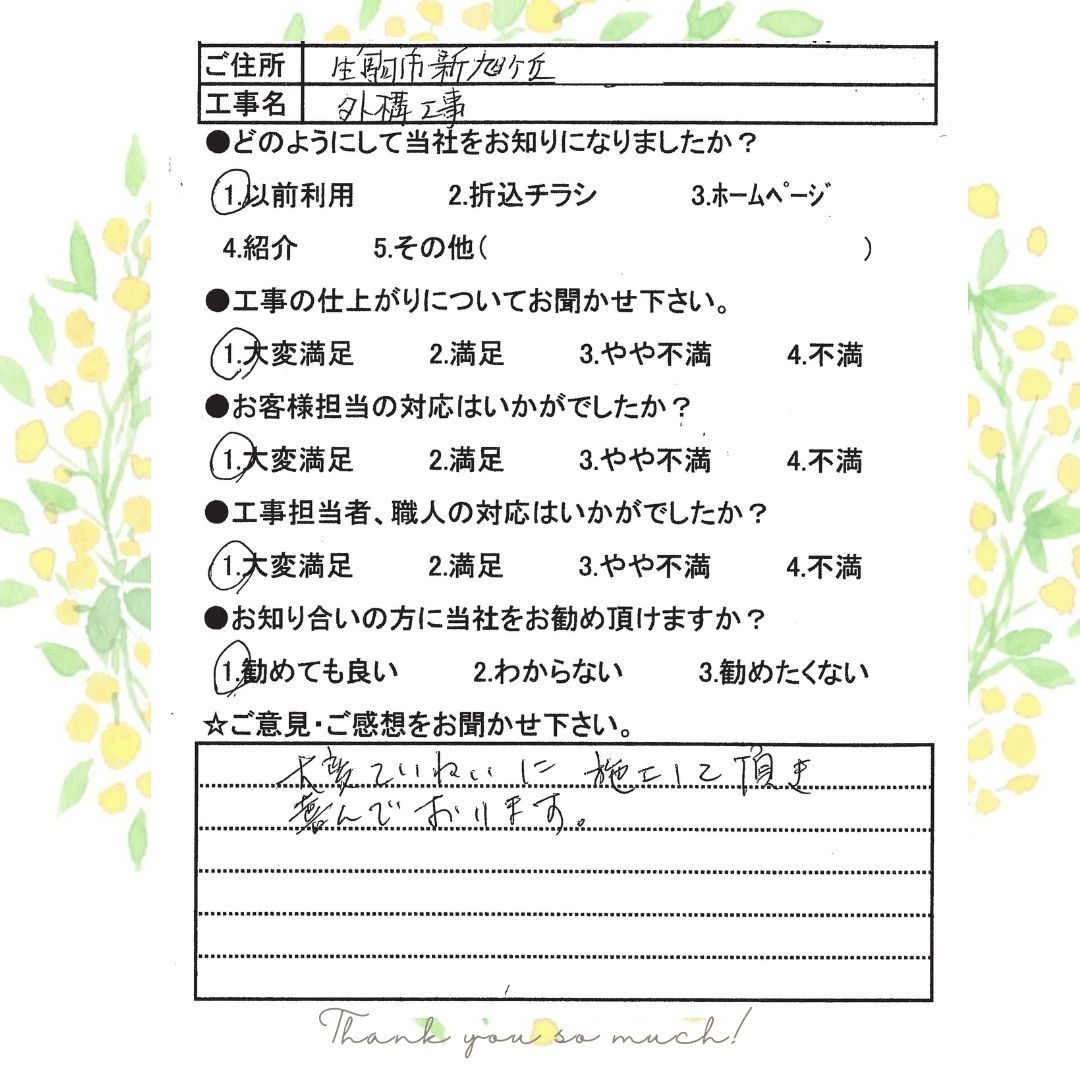 ご住所 生駒市新旭ケ丘
工事名 外構工事
●どのようにして当社をお知りになりましたか？
1.以前利用 2.折込チラシ 3.ﾎｰﾑﾍﾟｰｼﾞ
4.紹介 5.その他( )
●工事の仕上がりについてお聞かせ下さい。
1.大変満足 2.満足 3.やや不満 4.不満
●お客様担当の対応はいかがでしたか？
1.大変満足 2.満足 3.やや不満 4.不満
●工事担当者、職人の対応はいかがでしたか？
1.大変満足 2.満足 3.やや不満 4.不満
●お知り合いの方に当社をお勧め頂けますか？
1.勧めても良い 2.わからない 3.勧めたくない
☆ご意見・ご感想をお聞かせ下さい。
大変ていねいに 施工して頂き
喜んで おります。
Thank you so much!